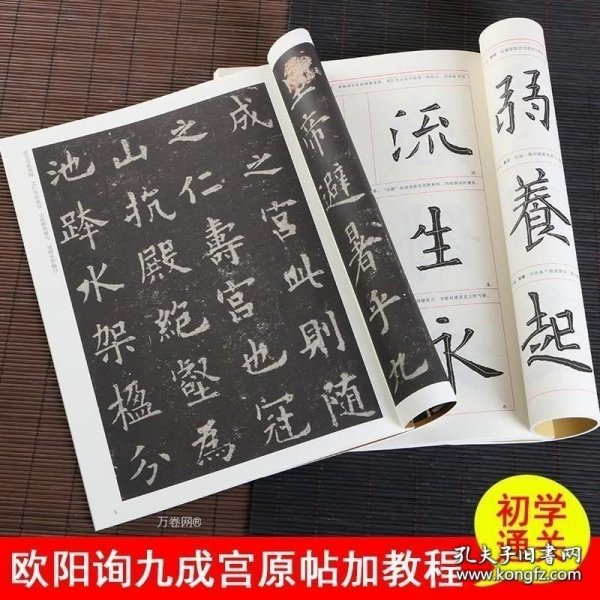 皇帝避暑乎九
成之宮此則隨
之仁壽宮也冠
山抗殿絕壑為
池跨水架楹分
弱養起
流生永
万卷网®
欧阳询九成宫原帖加教程
初学
通关
孔夫子旧书网
www.kongfz.com